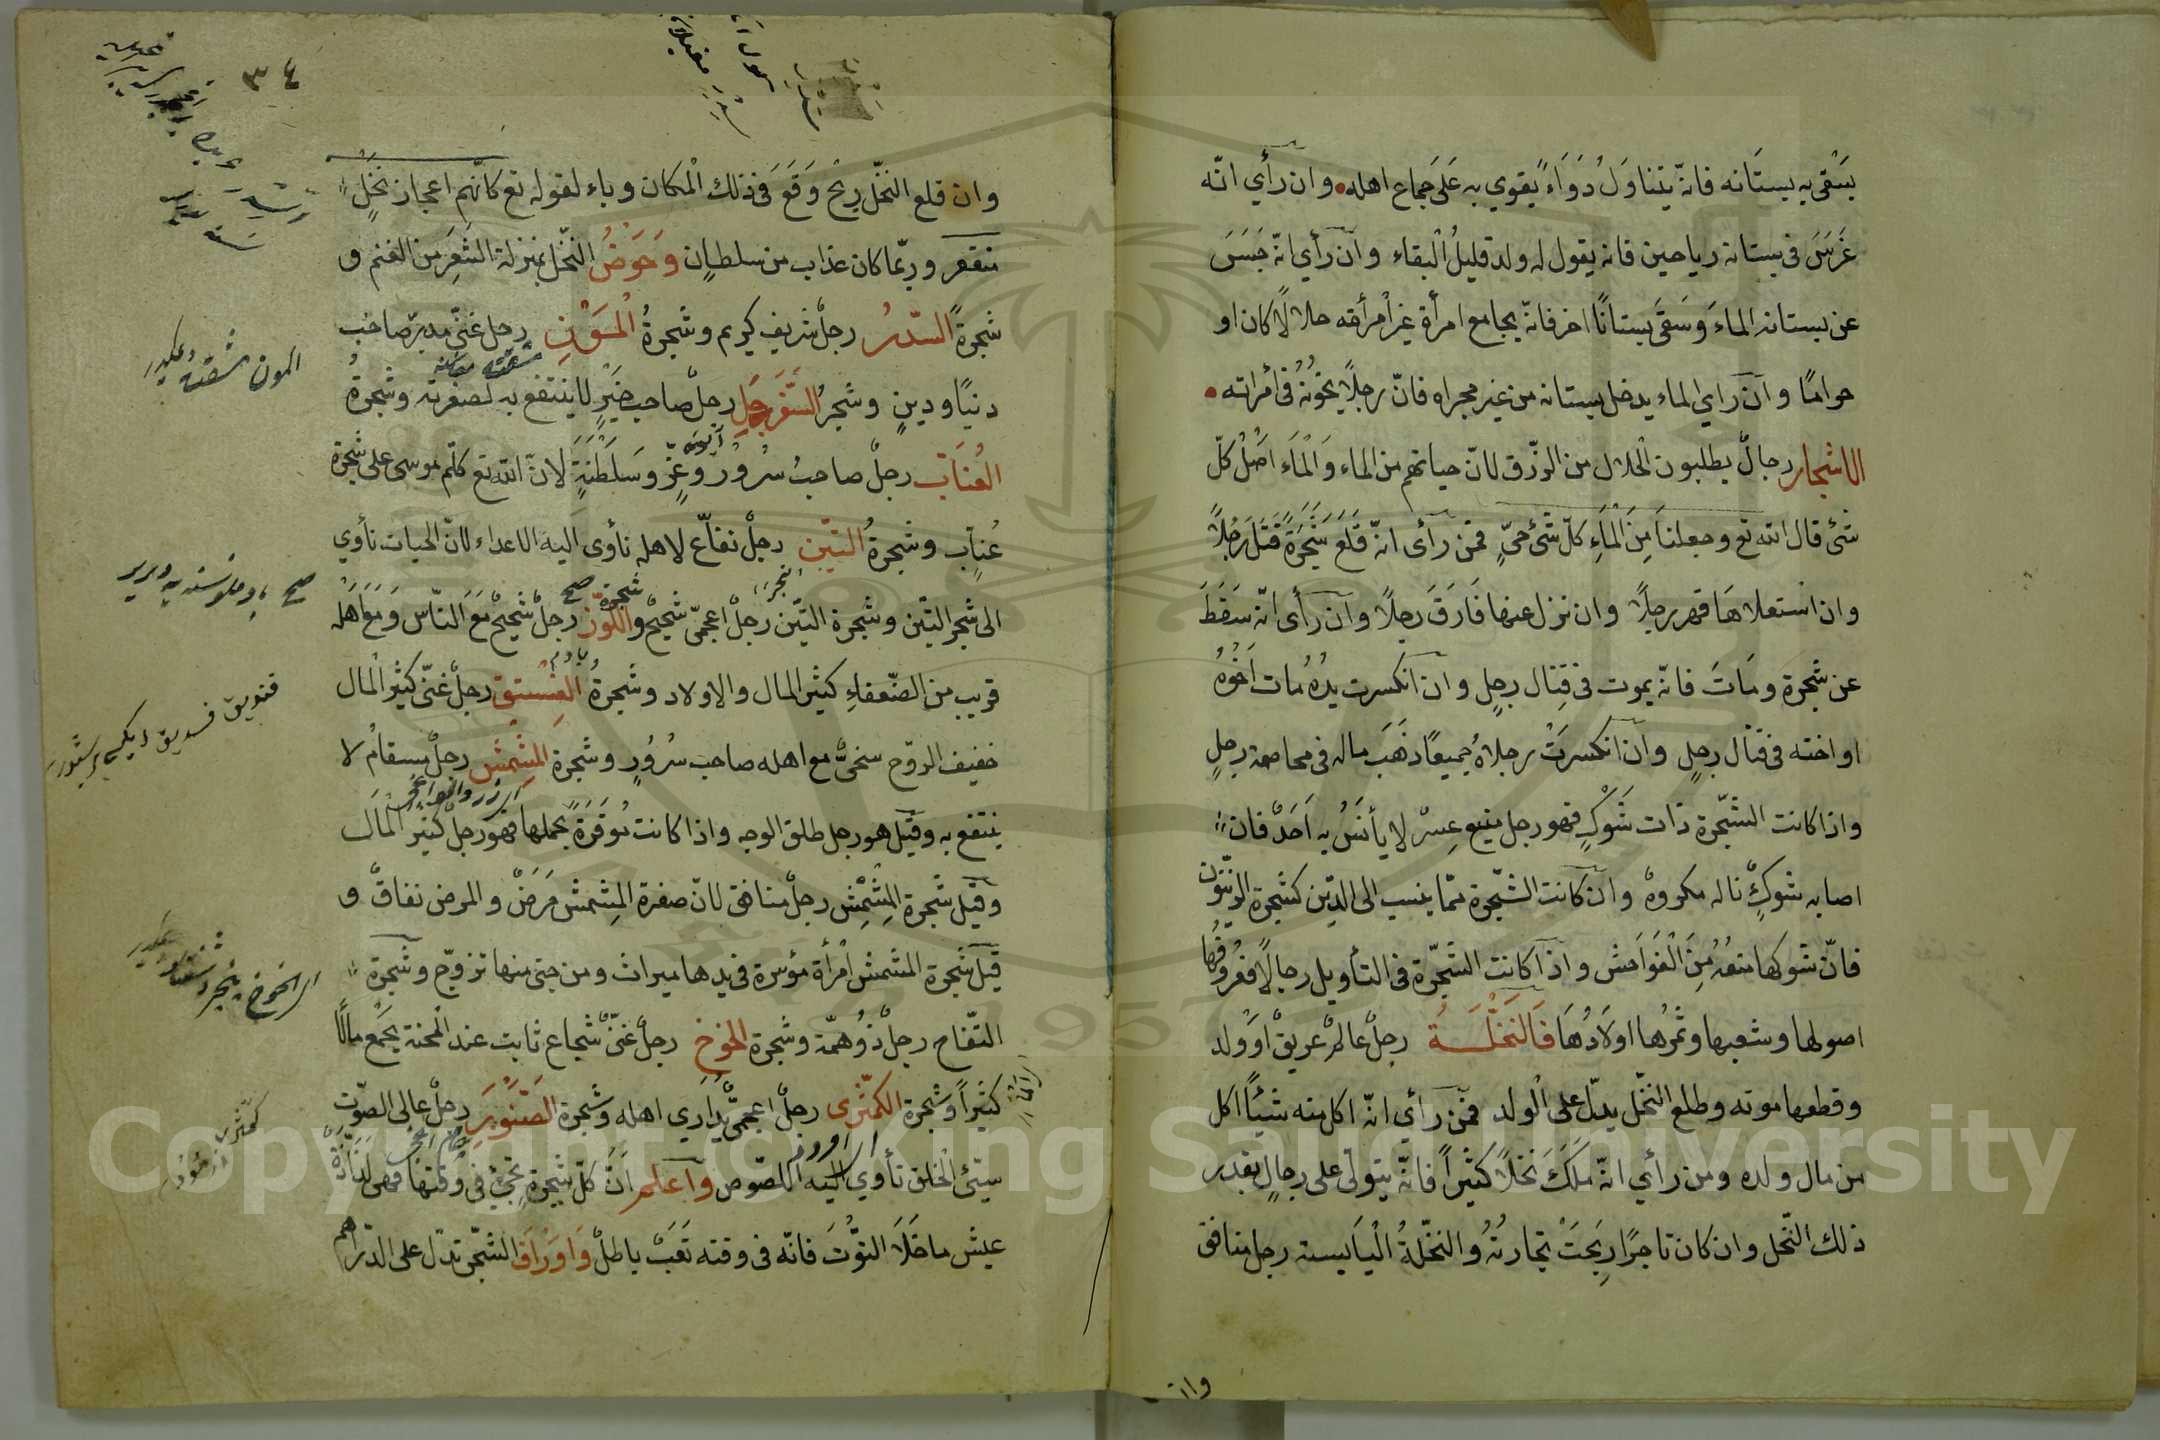 يسقي به بستانه فانه يتناول دواء يقوي به على جماع اهله وان رأي انه
غرس في بستانه رياحين فانه يقول له ولد قليل البقاء وان رأي انه حبس
عن بستانه الماء وسقى بستانا اخر فانه يجامع امرأة غير امرأته حلالا كان او
حراما وان راي الماء يدخل بستانه من غير مجراه فان رجلا يخونه في أمراته
الاشجار رجال يطلبون الحلال من الرزق لان حياتهم من الماء والماء اصل كل
شئ قال الله تع وجعلنا من الماء كل شئ حي فمن رأى انه قلع شجرة قتل رجلا
وان استعلاها قهر رجلا وان نزل عنها فارق رجلا وان رأى انه سقط
عن شجرة ومات فانه يموت في قتال رجل وان انكسرت يده مات اخوه
او اخته في قتال رجل وان انكسرت رجلاه جميعا ذهب ماله في مخاصمة رجل
واذا كانت الشجرة ذات شوك فهو رجل منيع عسر لا يأنس به احد فان
اصابه شوك ناله مكروه وان كانت الشجرة مما ينسب الى الدين كشجرة الزيتون
فان شوكها منعه من الفواحش واذا كانت الشجرة في التأويل رجالا فعروقها
اصولها وشعبها وثمرها اولادها فالنخلة رجل عالم عريق او ولد
وقطعها موته وطلع النخل يدل على الولد فمن رأي انه اكل منه شيئا اكل
من مال ولده ومن رأي انه ملك نخلا كثيرا فانه يتولى على رجال بقدر
ذلك النخل وان كان تاجرا ربحت تجارته والنخلة اليابسة رجل منافق
وان
٣٤
وان قلع النخل ريح وقع في ذلك المكان وباء لقوله تع كانهم اعجاز نخل
منقعر وربما كان عذاب من سلطان وحوض النخل بمنزلة الشعر من الغنم و
شجرة السدر رجل شريف كريم وشجرة الموز رجل غني مدبر صاحب
دنيا ودين وشجر السفرجل رجل صاحب خير لا ينتفع به لصفرته وشجرة
العناب رجل صاحب سرور وعز وسلطنة لان الله تع كلم موسى على شجرة
عناب وشجرة التين رجل نفاع لاهله تأوى اليه الاعداء لان الحيات تأوي
الى شجر التين وشجرة التين رجل اعجمى شحيح وشجرة اللوز رجل شحيح مع الناس ومع اهله
قريب من الضعفاء كثير المال والاولاد وشجرة الفستق رجل غني كثير المال
خفيف الروح سخي مع اهله صاحب سرور وشجرة المشمش رجل مسقام لا
ينتفع به وقيل هو رجل طلق الوجه واذا كانت موقرة بحملها فهو رجل كثير المال
وقيل شجرة المشمش رجل منافق لان صفرة المشمش مرض والمرض نفاق و
قيل شجرة المشمش امرأة مؤسرة في يدها ميراث ومن جنى منها تزوج وشجرة
التفاح رجل ذو همة وشجرة الخوخ رجل غني شجاع ثابت عند المحنة يجمع مالا
كثيرا وشجرة الكمثرى رجل اعجمي يداري اهله وشجرة الصنوبر رجل عالى الصوت
سيئ الخلق تأوي اليه اللصوص واعلم ان كل شجرة تجئ في وقتها فهي لذاذة
عيش ما خلا التوت فانه في وقته تعب باطل واوراق الشجر تدل على الدراهم
Copyright to King Saud University
1957